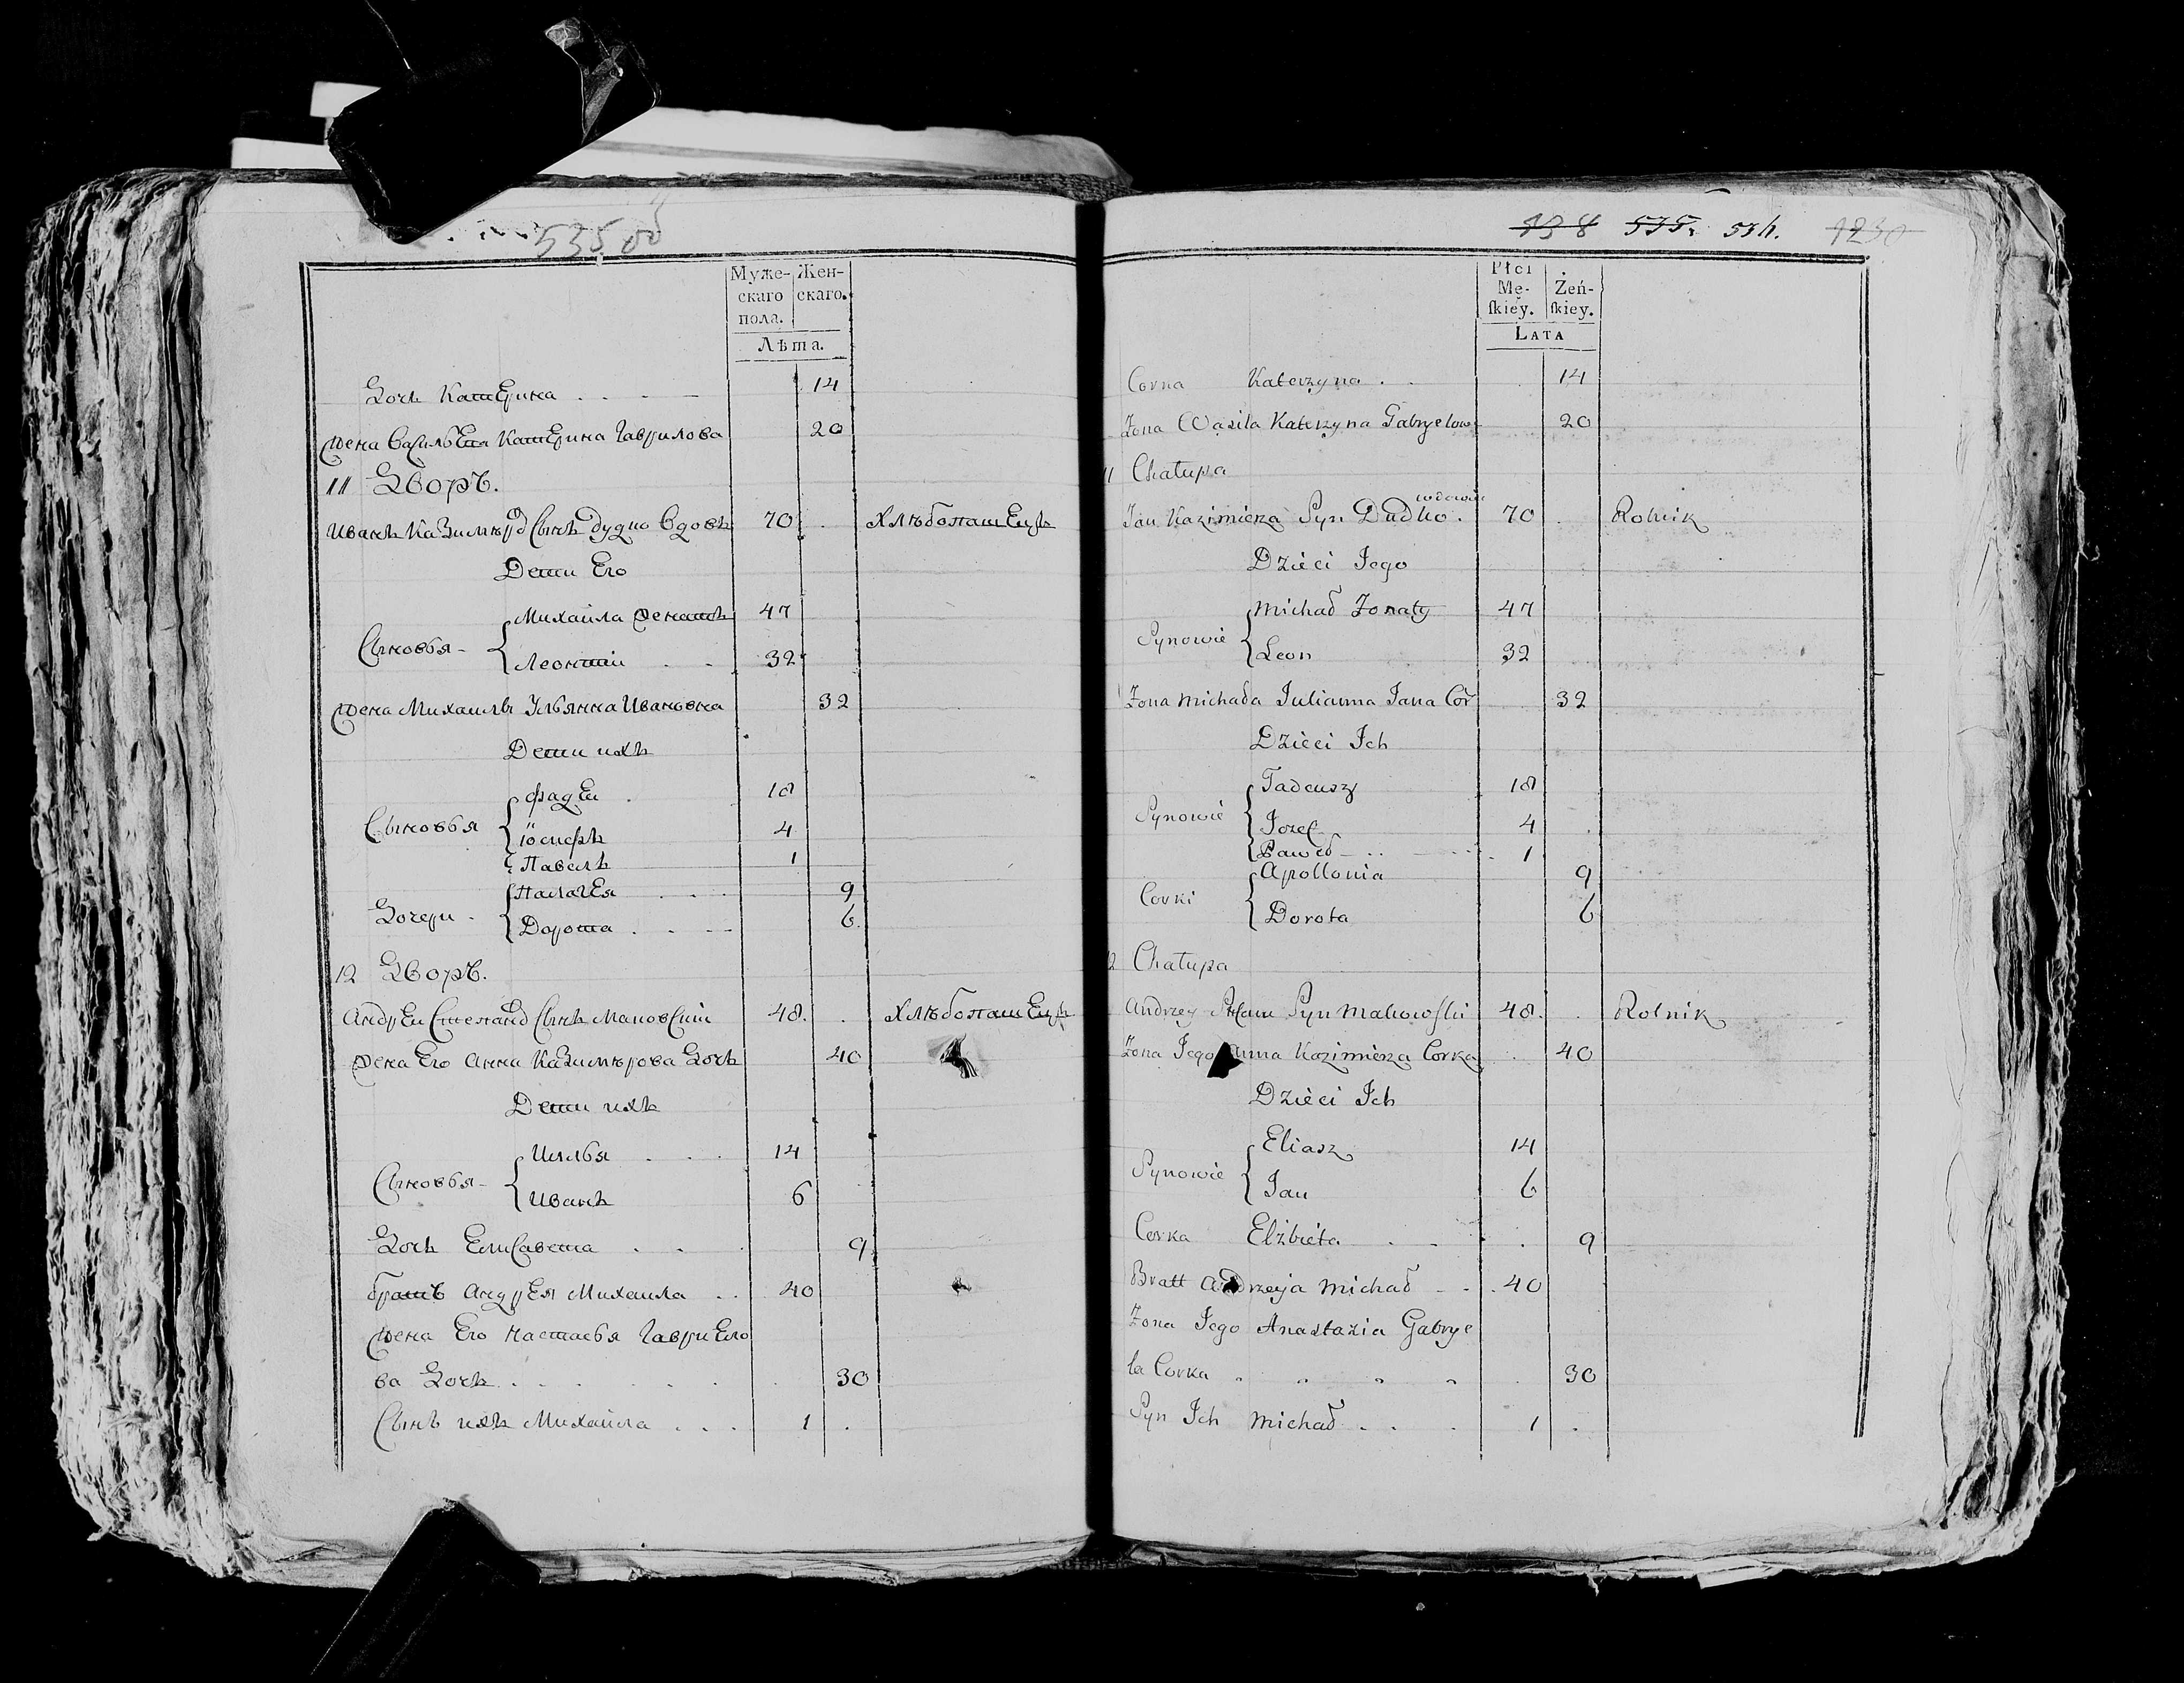 535 об
Муже-
скаго
пола.
Жен-
скаго.
Лѣта.
Дочь Катерина 14
жена Василья Катерина Гаврилова 20
11 Дворъ.
Иванъ Казимѣр. Сынъ дудко вдовъ 70 Хлѣбопашецъ
Дети Его
Сыновья
Михайла женатъ 47
Леонтій 32
жена Михаила Ульянна Ивановна 32
Дети ихъ
Сыновья
Фадеи 18
Іосифъ 4
Павелъ 1
Дочери
Палагея 9
Дорота 6
12 Дворъ.
Андреи Степан. Сынъ Маковскій 48. Хлѣбопашецъ
жена Его Анна Казимѣрова Дочь 40
Дети ихъ
Сыновья
Илья 14
Иванъ 6
Дочь Елисавета 9
братъ Андрея Михаила 40
жена Его Настасья Гаврило
ва Дочь 30
Сынъ ихъ Михайла 1
138 535. 536. 1230
Płci
Mę-
ſkiéy.
Żeń-
ſkiey.
LATA
Corka Katerzyna 14
Zona Wasila Katerzyna Gabryelow 20
11 Chałupa
wdowiec
Jan Kazimierza Syn Dudko. 70 Rolnik
Dzieci Jego
Synowie
Michał Zonaty 47
Leon 32
Zona Michała Julianna Jana Cor 32
Dzieci Ich
Synowie
Tadeusz 18
Jozef 4
Paweł 1
Corki
Apollonia 9
Dorota 6
12 Chałupa
Andrzey Stefana Syn Makowſki 48. Rolnik
Zona Jego Anna Kazimierza Corka 40
Dzieci Ich
Synowie
Eliasz 14
Jan 6
Corka Elżbieta 9
Bratt Andrzeja Michał 40
Zona Jego Anastazia Gabrye
la Corka 30
Syn Ich Michał 1